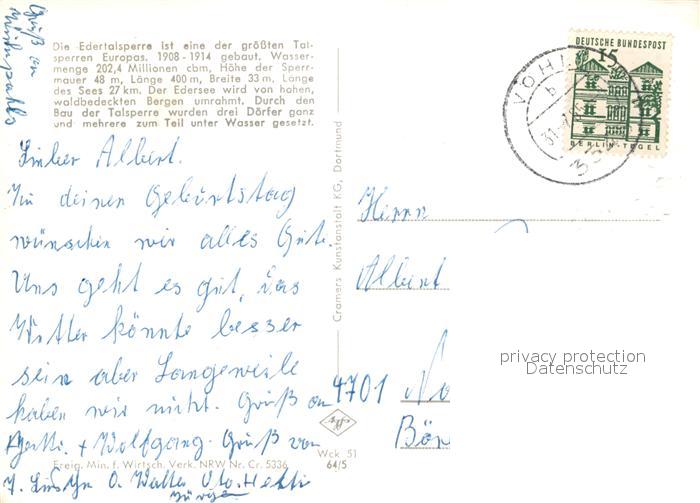 Die Edertalsperre ist eine der größten Tal-
sperren Europas. 1908-1914 gebaut. Wasser-
menge 202,4 Millionen cbm, Höhe der Sperr-
mauer 48 m, Länge 400 m, Breite 33 m, Länge
des Sees 27 km. Der Edersee wird von hohen,
waldbedeckten Bergen umrahmt. Durch den
Bau der Talsperre wurden drei Dörfer ganz
und mehrere zum Teil unter Wasser gesetzt.
Lieber Albert.
Zu deinen Geburtstag
wünschen wir alles Gute.
Uns geht es gut, das
Wetter könnte besser
sein aber Langeweile
haben wir nicht. Gruß an
+ Wolfgang. Gruß von
O. Walter
Jürgen
Gruß an
Freig. Min. f. Wirtsch. Verk. NRW Nr. Cr. 5336
Wck 51
64/5
Cramers Kunstanstalt KG, Dortmund
DEUTSCHE BUNDESPOST
15
BERLIN-TEGEL
VOHL
b
Herrn
Albert
4701
privacy protection
Datenschutz